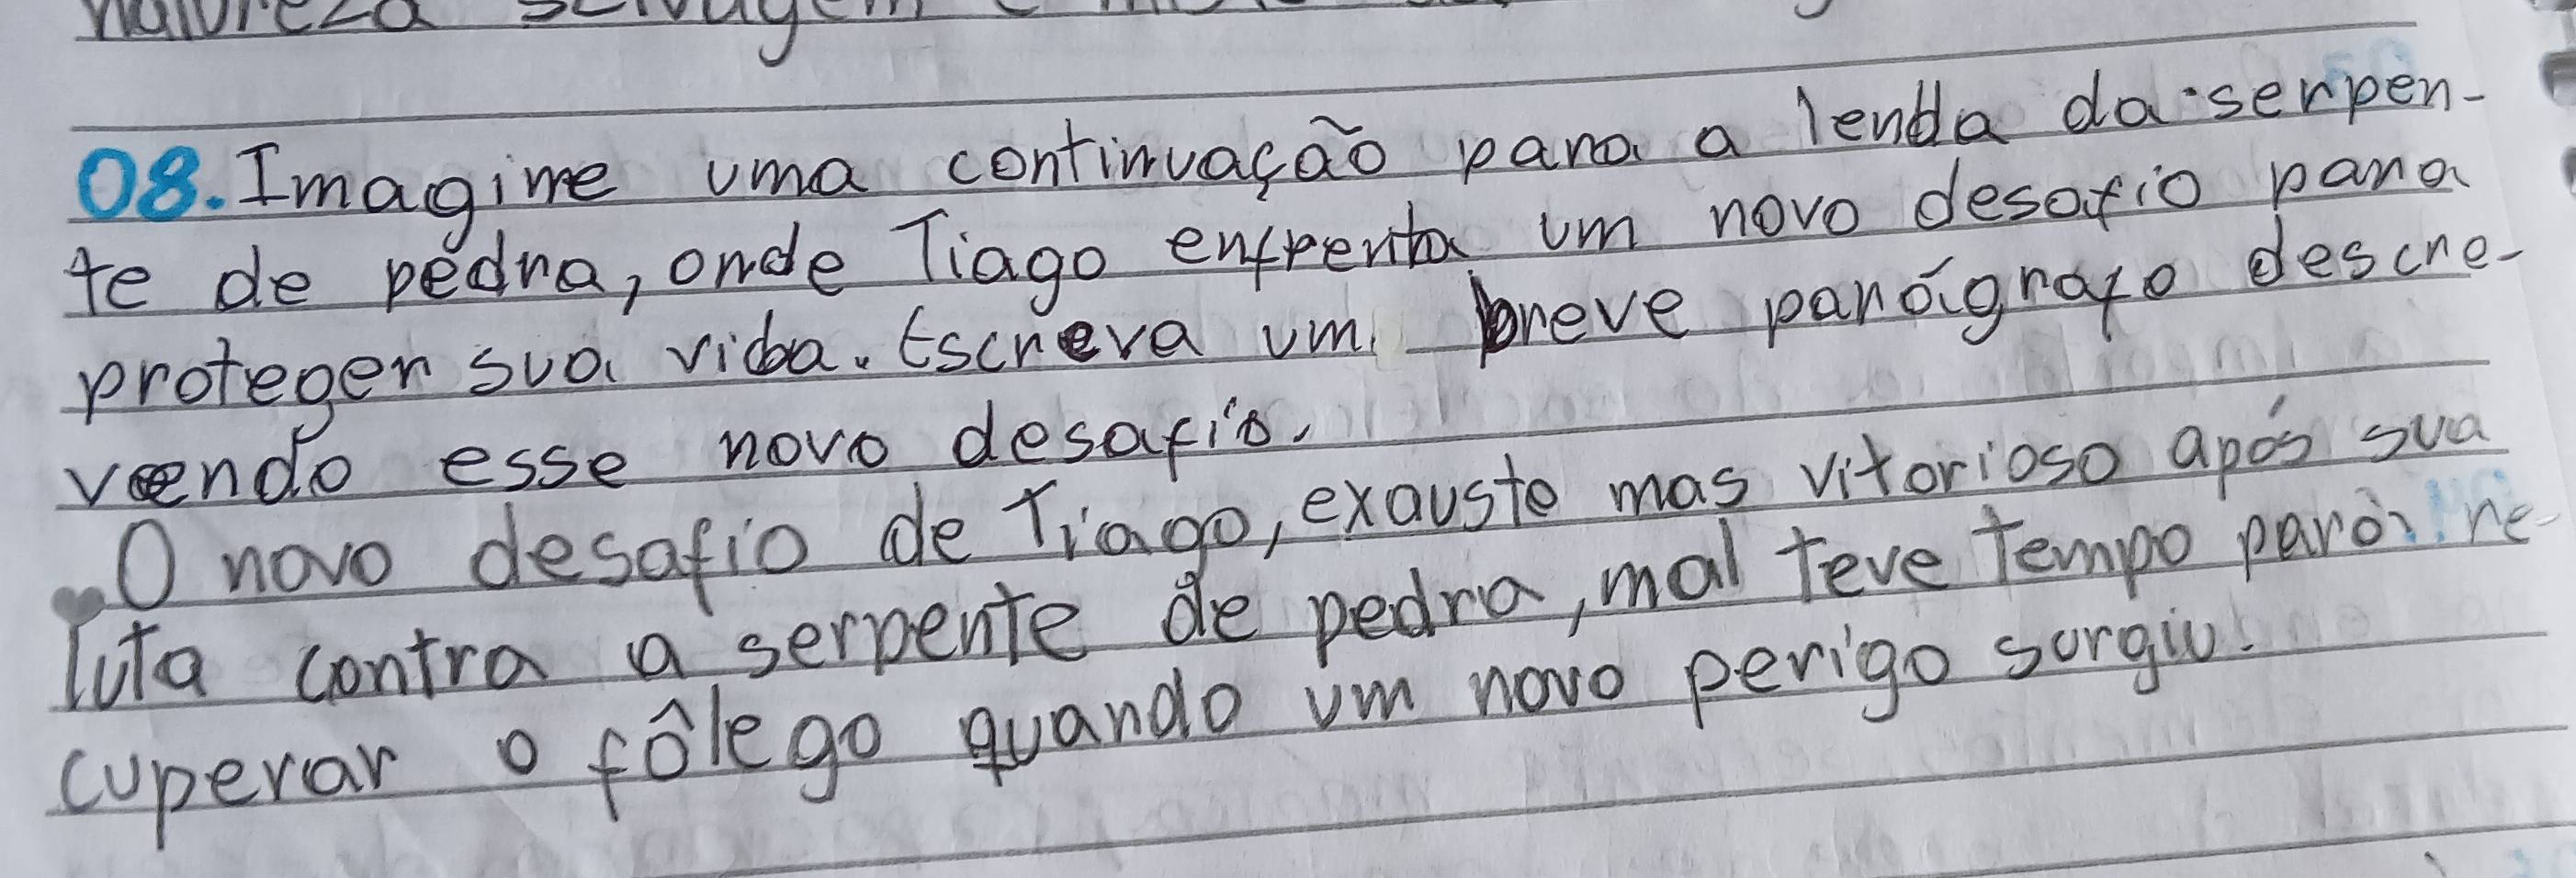 natureza selvagem e
08. Imagine uma continuação para a lenda da serpen-
te de pedra, onde Tiago enfrenta um novo desafio para
proteger sua vida. Escreva um breve parágrafo descre-
vendo esse novo desafio.
O novo desafio de Tiago, exausto mas vitorioso após sua
luta contra a serpente de pedra, mal teve tempo para re-
cuperar o fôlego quando um novo perigo surgiu.